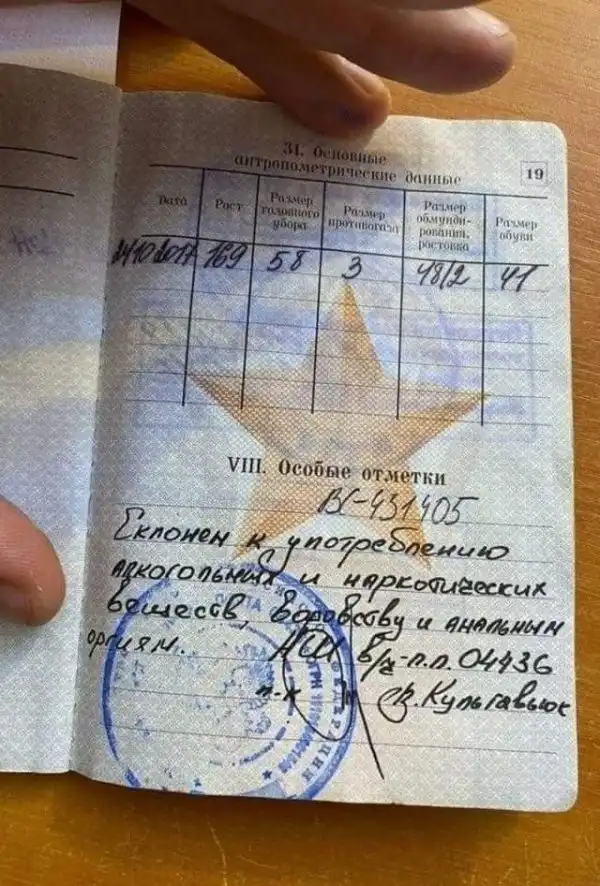 31. Основные
антропометрические данные
19
Дата
Рост
Размер
головного
убора
Размер
противогаза
Размер
обмунди-
рования,
ростовка
Размер
обуви
24.10.2017 169 58 3 48/2 41
VIII. Особые отметки
ВС-431405
Склонен к употреблению
алкогольных и наркотических
веществ, воровству и анальным
оргиям. НШ в/ч-п.п. 04436
п-к